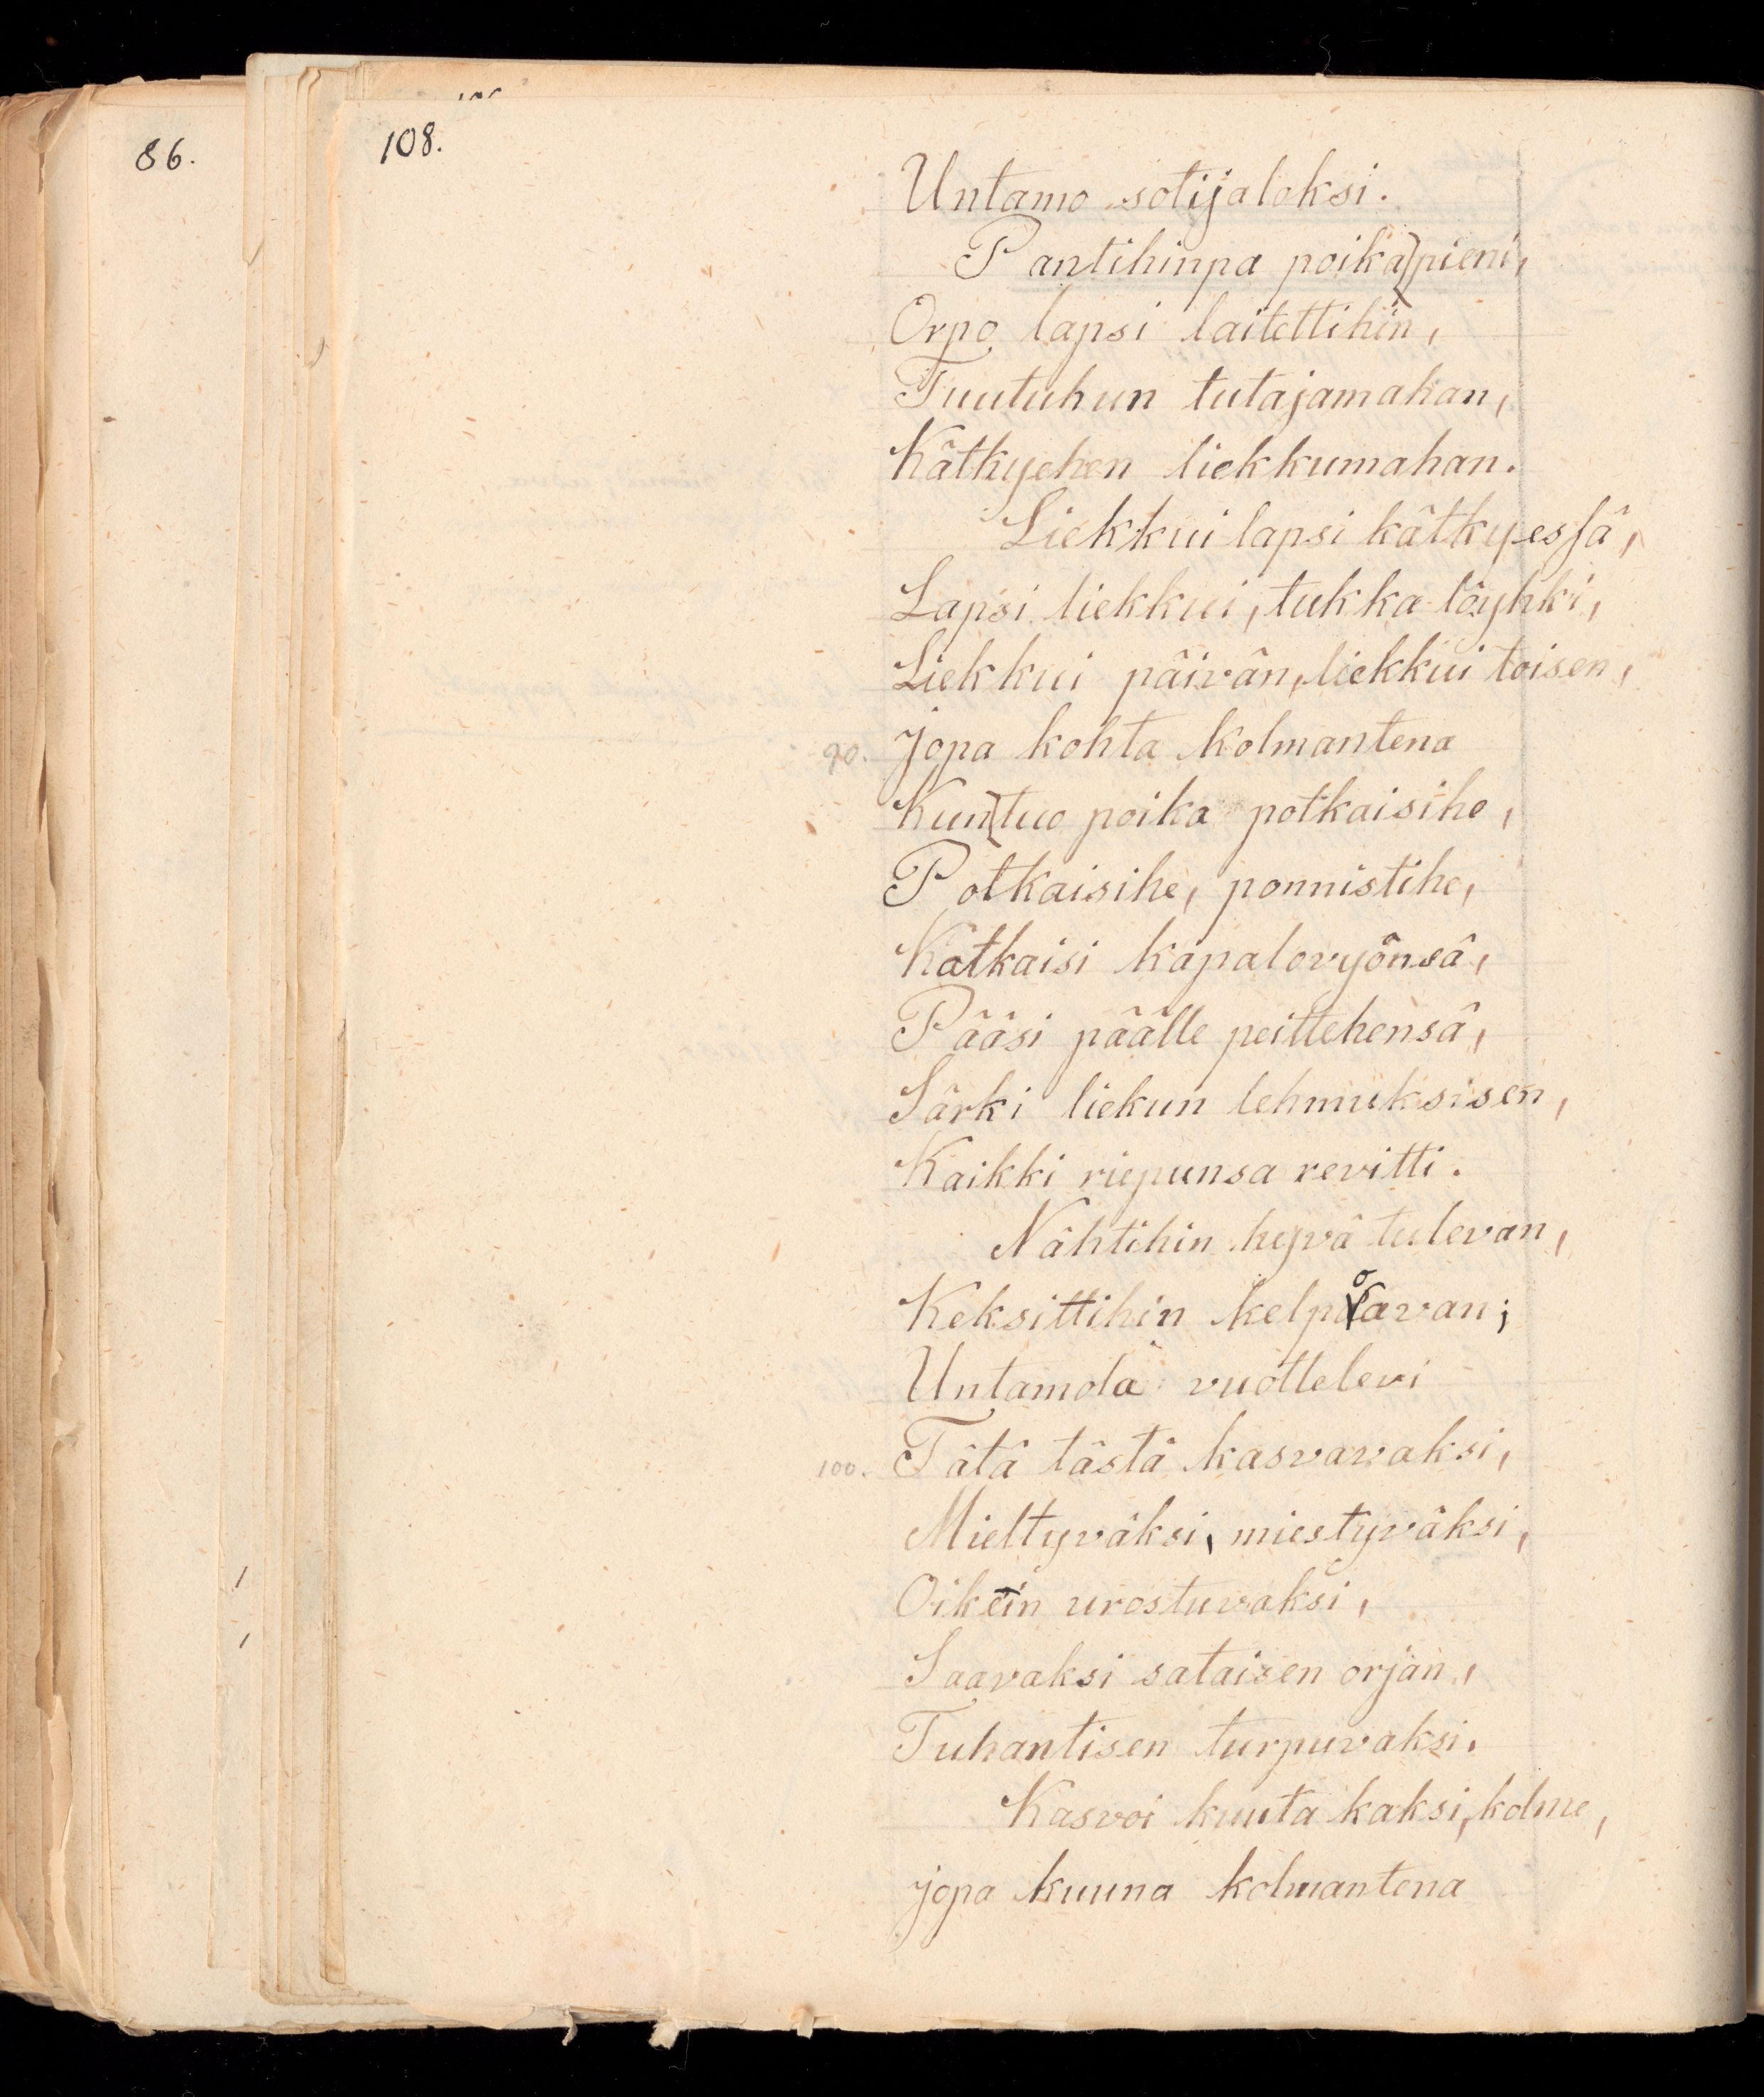 86.
108.
Untamo sotijaloksi.
Pantihinpa poika pieni,
Orpo lapsi laitettihin,
Tuutuhun tutajamahan,
Kätkyehen liekkumahan.
Liekkui lapsi kätkyesſä,
Lapsi liekkui, tukka löyhki,
Liekkui päivän, liekkui toisen,
90. Jopa kohta kolmantena
Kun tuo poika potkaisihe,
Potkaisihe, ponnistihe,
Katkaisi kapalovyönsä,
Pääsi päälle peittehensä,
Särki liekun lehmuksisen,
Kaikki riepunsa revitti.
Nähtihin hyvä tulevan,
Keksittihin kelpoavan;
Untamola vuottelevi
100. Tätä tästä kasvavaksi,
Mieltyväksi, miestyväksi,
Oikein urostuvaksi,
Saavaksi sataisen orjan,
Tuhantisen turpuvaksi.
Kasvoi kuuta kaksi, kolme,
jopa kuuna kolmantena